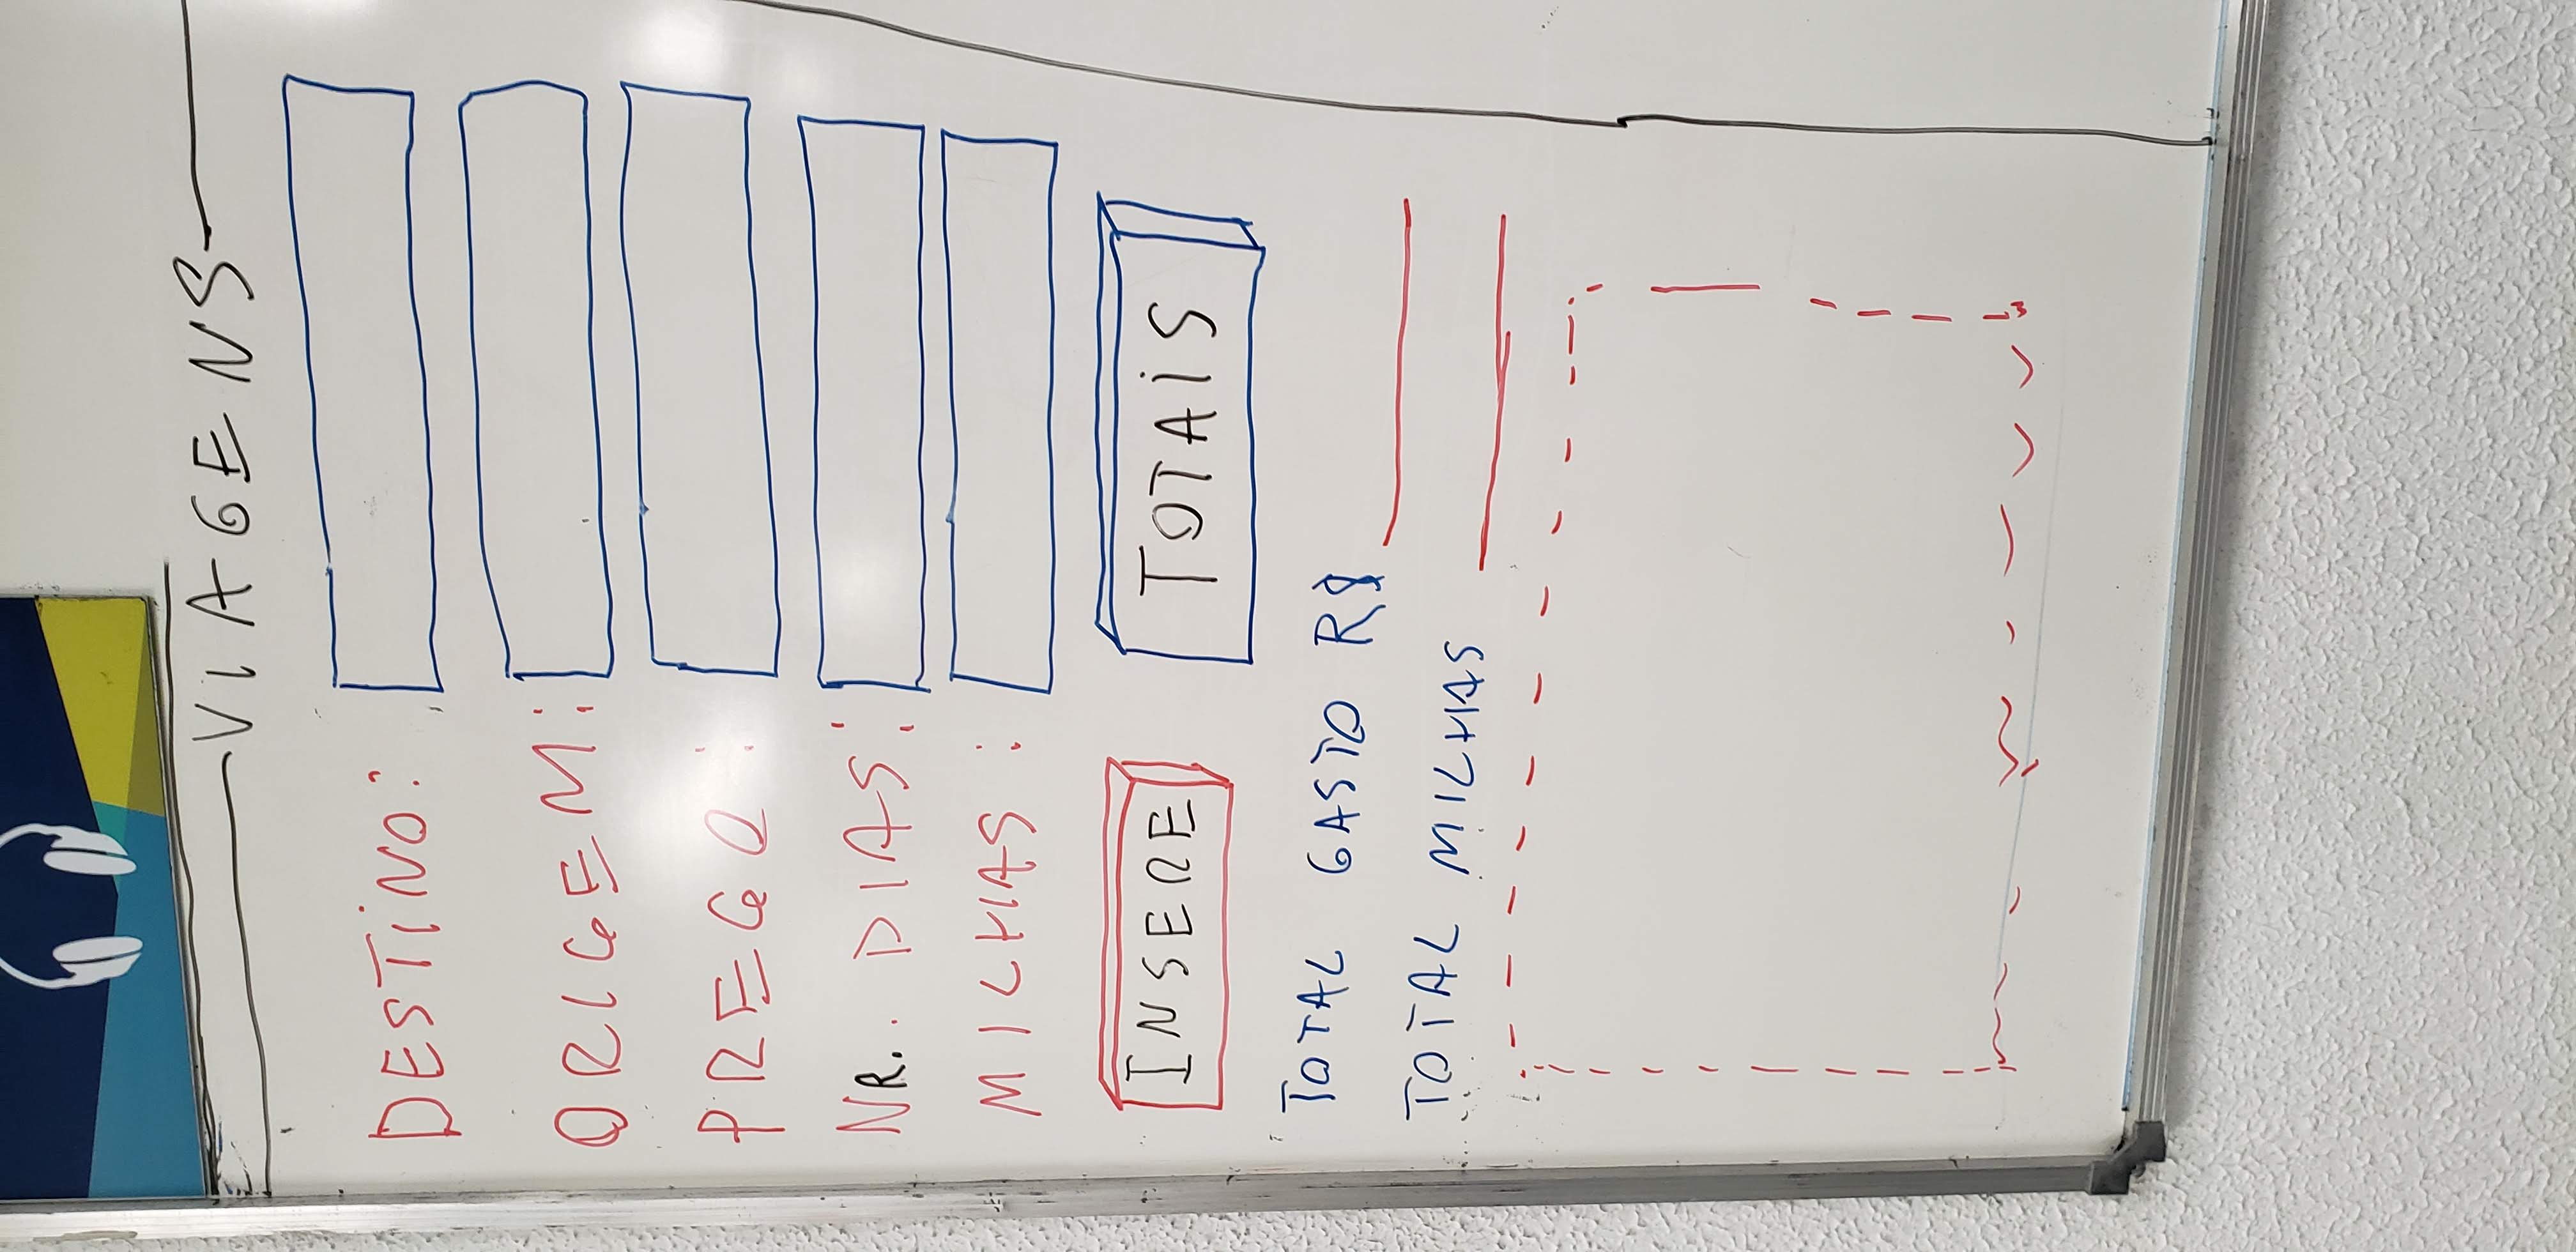 VIAGENS
DESTINO:
ORIGEM:
PREGO:
NR. DIAS:
MILHAS:
INSERE TOTAIS
TOTAL GASTO R$
TOTAL MILHAS